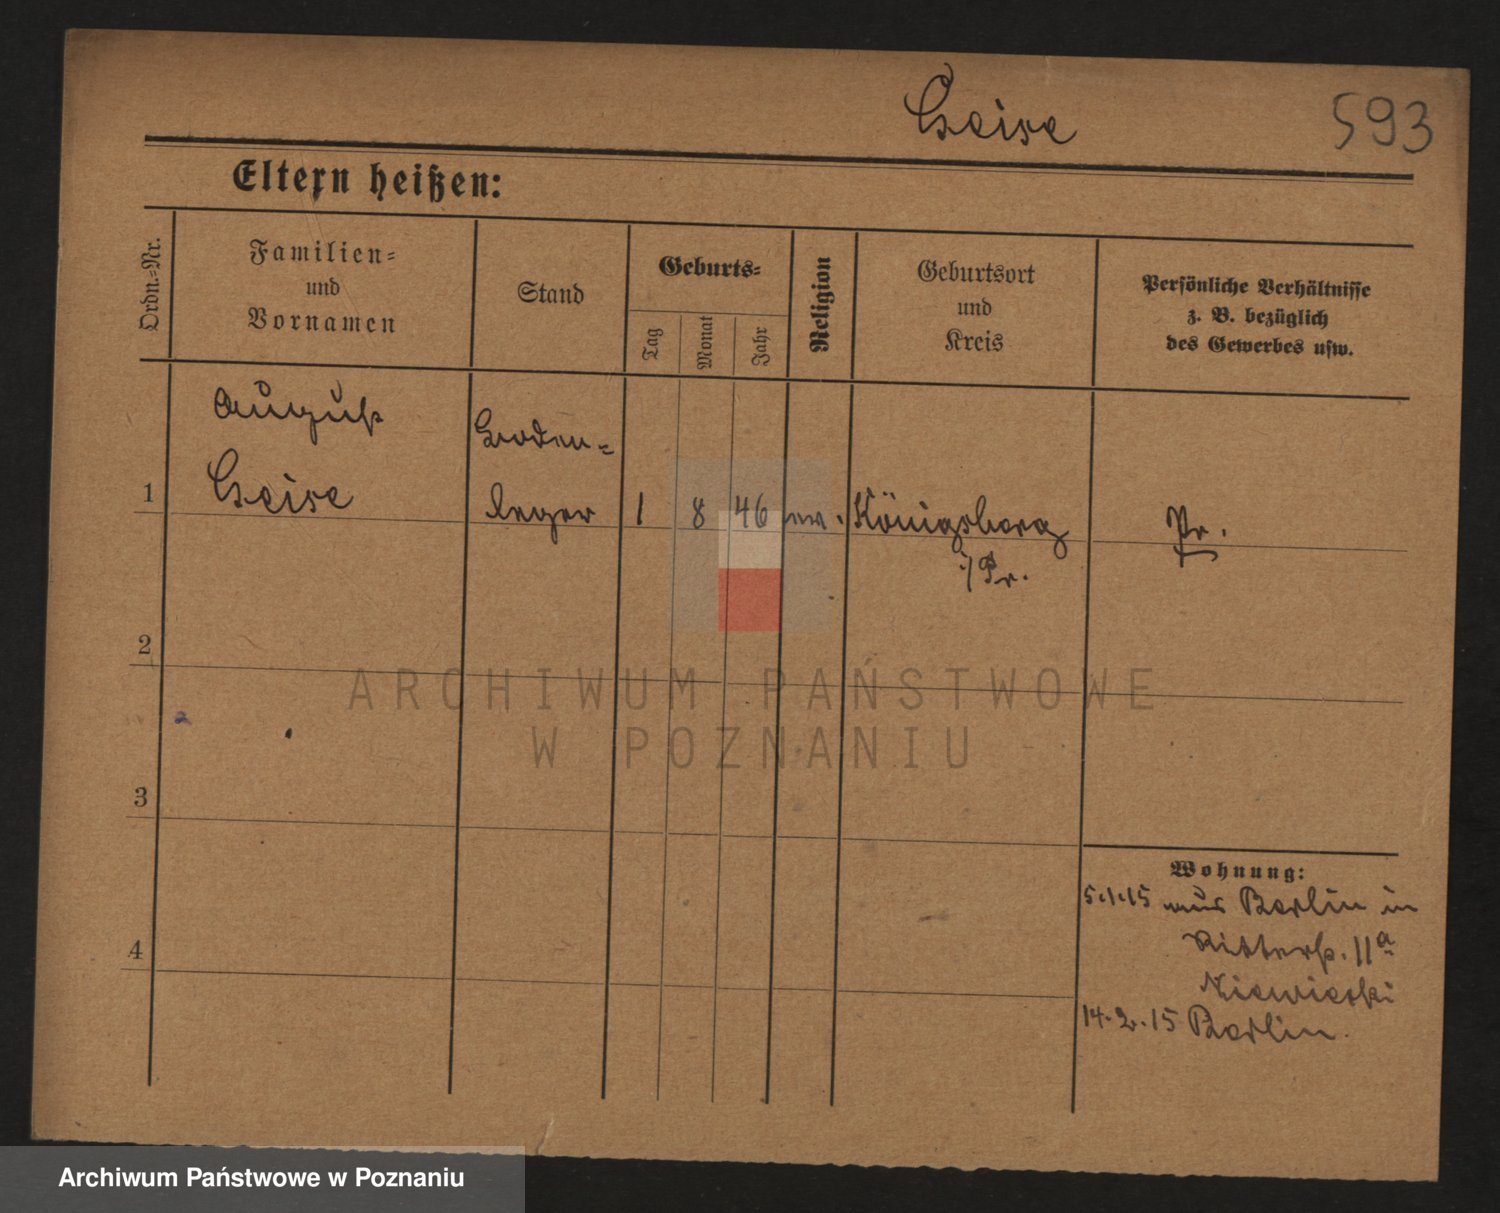 Geise
593
Eltern heißen:
Ordn.-Nr.
Familien-
und
Vornamen
Stand
Geburts-
Tag
Monat
Jahr
Religion
Geburtsort
und
Kreis
Persönliche Verhältnisse
z. B. bezüglich
des Gewerbes usw.
August
Boden-
1
Geise
leger
1
8
46
ev.
Königsberg
i/Pr.
Pr.
2
3
4
Wohnung:
5.1.15 aus Berlin in
Ritterst. 11a
14.2.15 Berlin.
ARCHIWUM PAŃSTWOWE
W POZNANIU
Archiwum Państwowe w Poznaniu